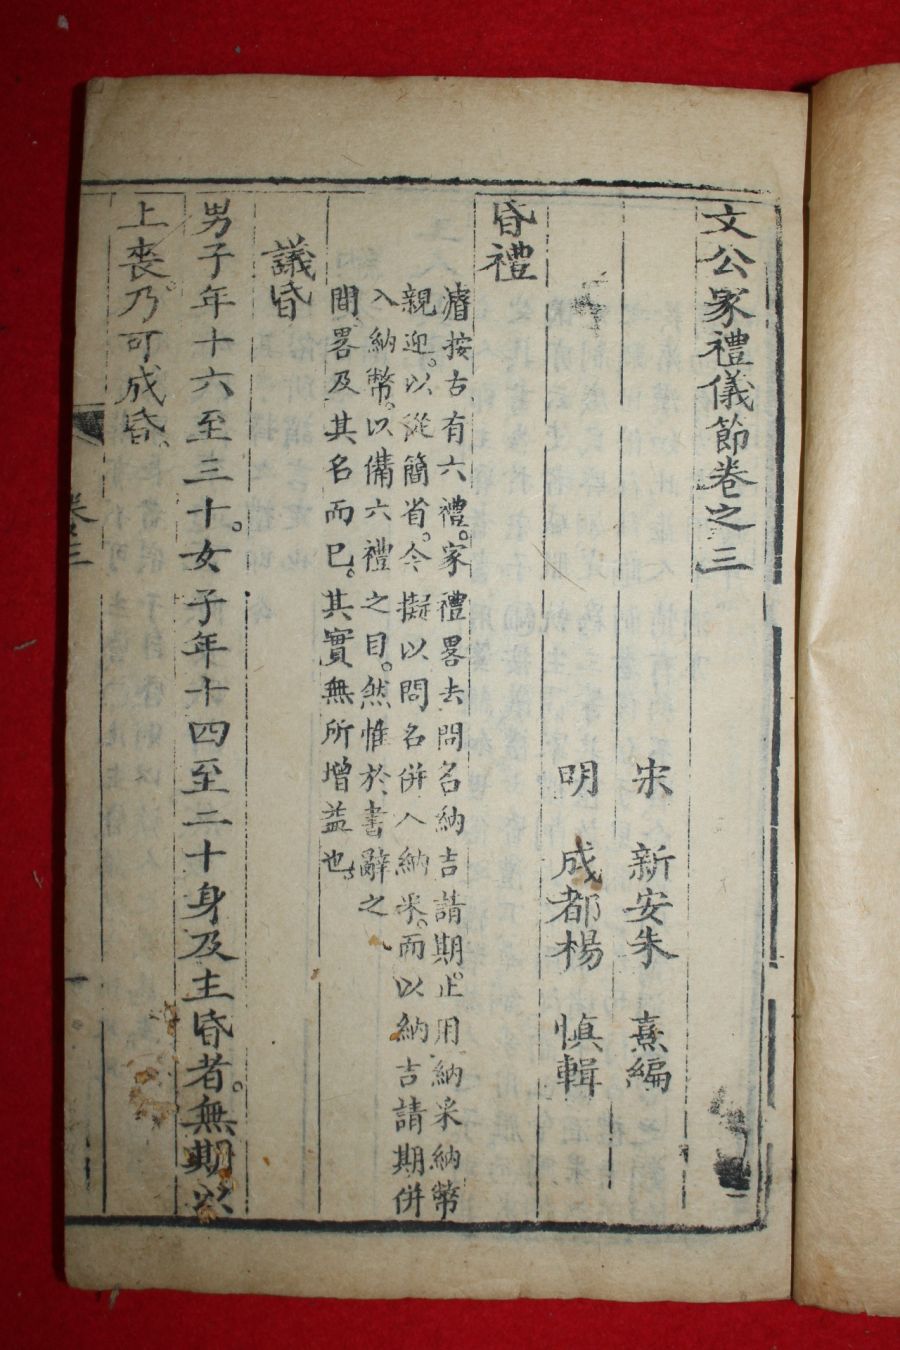 文公家禮儀節卷之三
宋　新安朱　熹編
明　成都楊　慎輯
昏禮
濬按古有六禮。家禮畧去問名納吉請期。止用納采納幣
親迎。以從簡省。今擬以問名併入納采。而以納吉請期併
入納幣。以備六禮之目。然惟於書辭之
間、畧及其名而已。其實無所增益也。
議昏
男子年十六至三十。女子年十四至二十身及主昏者。無期以
上喪乃可成昏、
卷之三